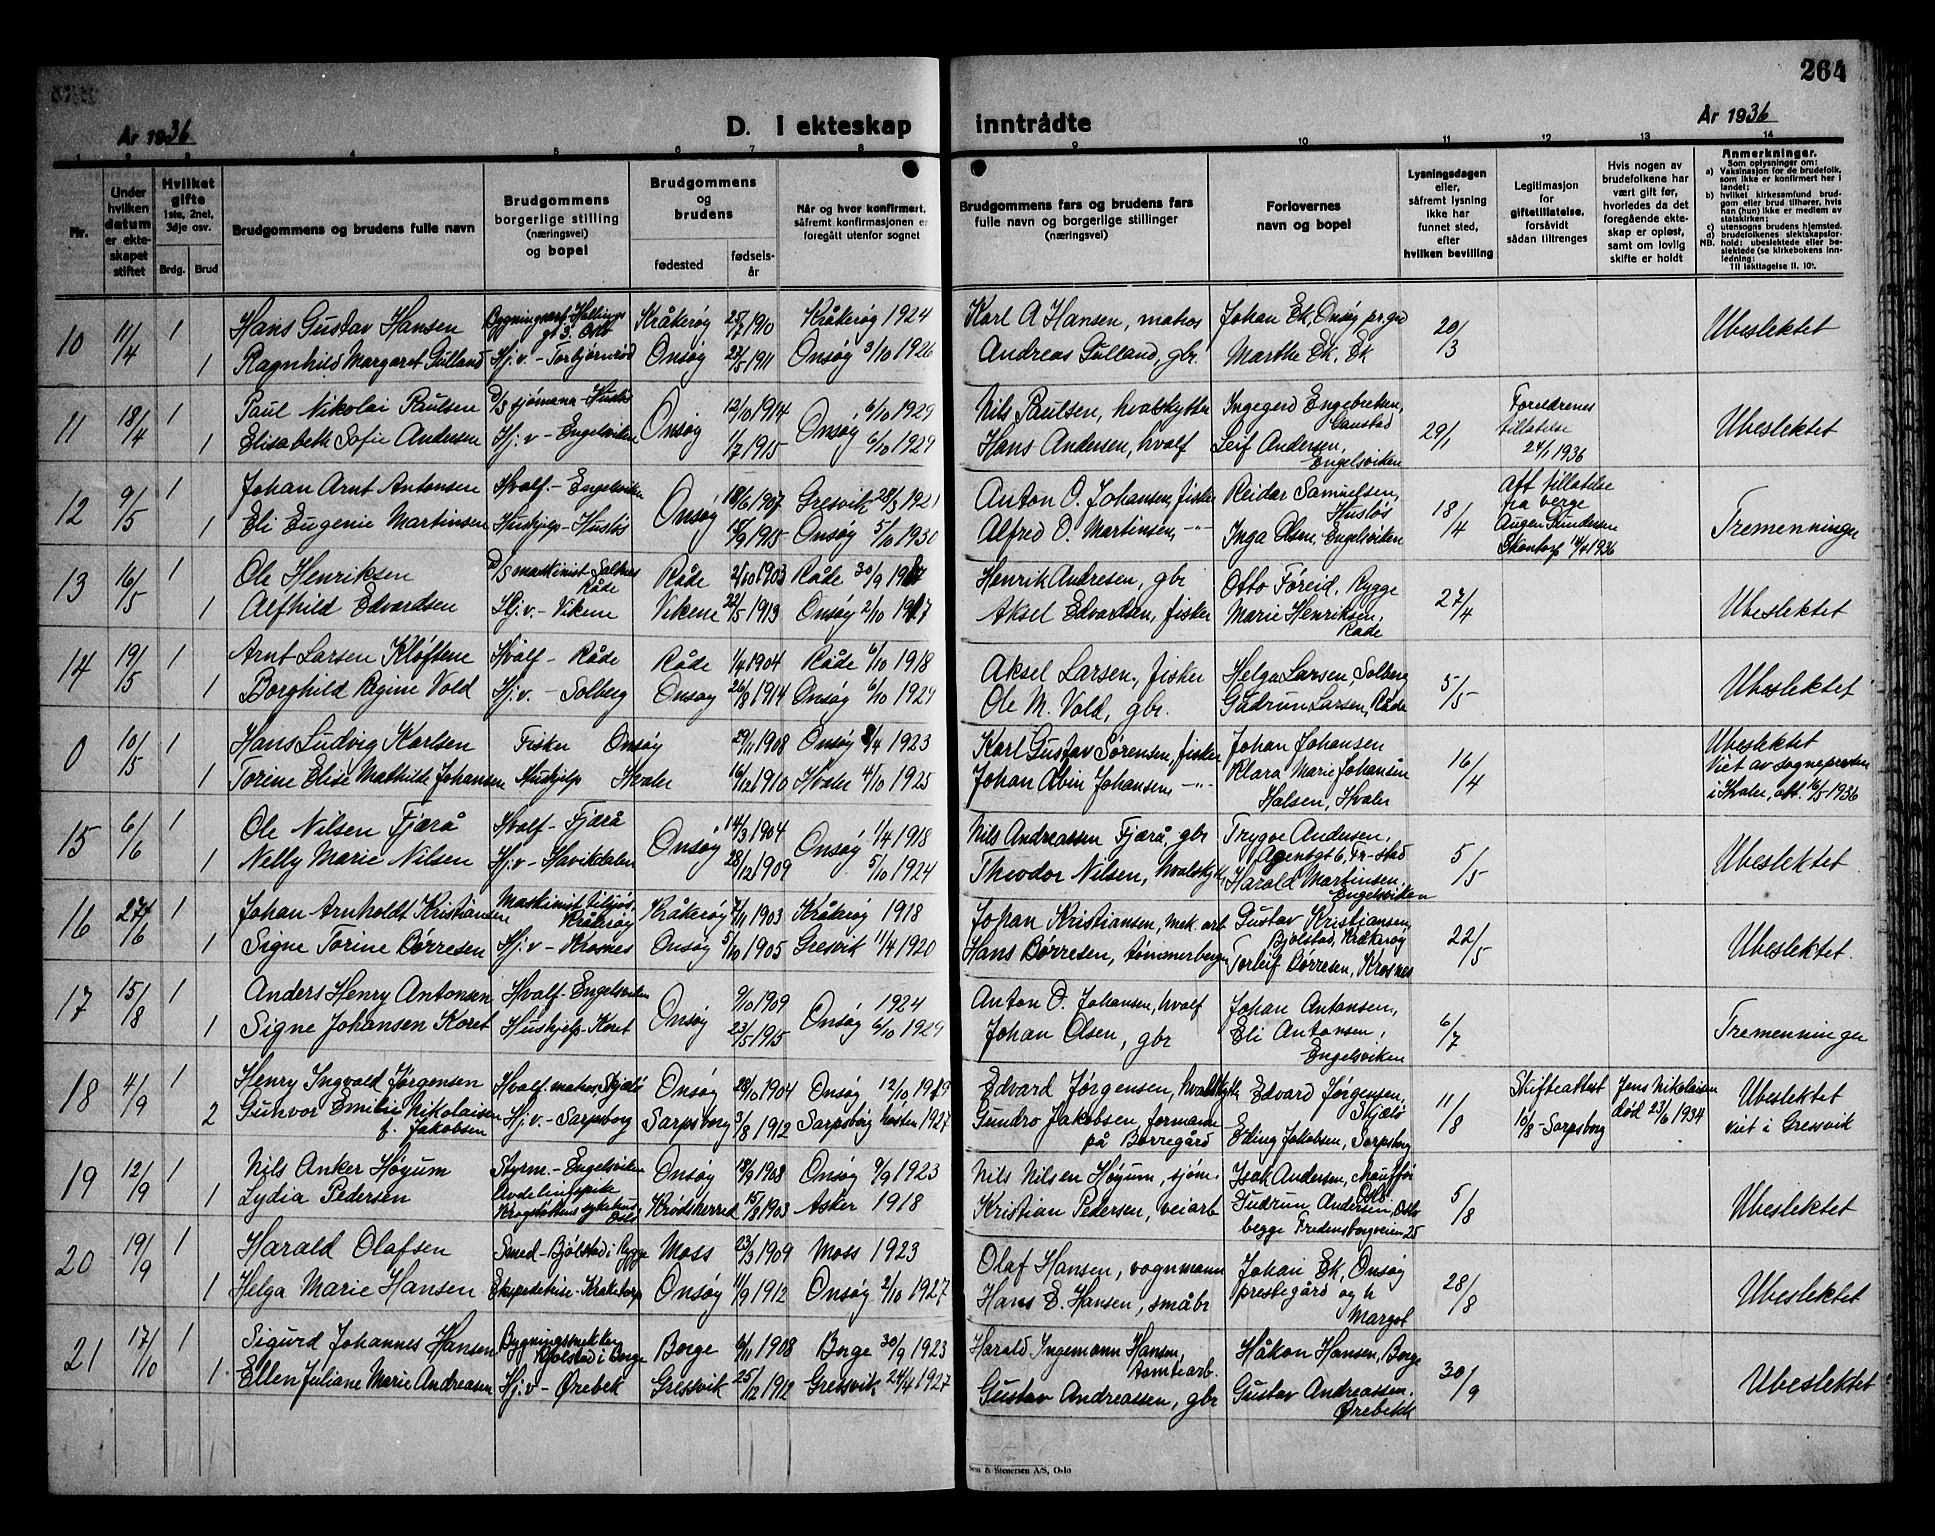 264
År 1936
D. I ekteskap inntrådte
År 1936
1 2 3 4 5 6 7 8 9 10 11 12 13 14
Nr.
Under hvilken datum er ekteskapet stiftet
Hvilket gifte 1ste, 2net, 3dje osv.
Brdg. Brud
Brudgommens og brudens fulle navn
Brudgommens borgerlige stilling (næringsvei) og bopel
Brudgommens og brudens
fødested
fødselsår
Når og hvor konfirmert, såfremt konfirmasjonen er foregått utenfor sognet
Brudgommens fars og brudens fars fulle navn og borgerlige stillinger (næringsvei)
Forlovernes navn og bopel
Lysningsdagen eller, såfremt lysning ikke har funnet sted, efter hvilken bevilling
Legitimasjon for giftetillatelse, forsåvidt sådan tiltrenges
Hvis nogen av brudefolkene har vært gift før, hvorledes da det foregående ekteskap er opløst, samt om lovlig skifte er holdt
Anmerkninger.
Som oplysninger om:
a) Vaksinasjon for de brudefolk, som ikke er konfirmert her i landet;
b) hvilket kirkesamfund brudgom eller brud tilhører, hvis han (hun) ikke er medlem av statskirken;
c) utensogns brudens hjemsted.
d) brudefolkenes slektskapsforhold: ubeslektede eller beslektede (se kirkebokens innledning;
NB. Til iakttagelse II. 10°.
10 11/4 1 Hans Gustav Hansen Kråkerøy 25/2 1910 Kråkerøy 1924 Karl A Hansen, matros Johan Ek, Onsøy pr.grd 20/3 Ubeslektet
1 Ragnhild Margaret Gulland Hj.v - Torbjørnrød Onsøy 27/5 1911 Onsøy 3/10 1926 Andreas Gulland, gbr. Marthe Ek, Ek
11 18/4 1 Paul Nikolai Paulsen D/S sjømann - Husløs Onsøy 12/10 1914 Onsøy 6/10 1929 Nils Paulsen, hvalskytter Ingegerd Engebretsen, Gaustad 29/1 Foreldrenes tillatelse 24/1 1936 Ubeslektet
1 Elisabeth Sofie Andersen Hj.v - Engelsviken 1/7 1915 6/10 1929 Hans Andersen, hvalf Leif Andersen, Engelsviken
12 9/5 1 Johan Arnt Antonsen Hvalf. - Engelsviken Onsøy 18/6 1907 Gresvik 28/3 1921 Anton O. Johansen, fisker Reidar Samuelsen, Husløs 18/4 Aft tillatelse fra verge Tremenninge
1 Eli Eugenie Martinsen Hushjelp - Husløs 15/9 1915 Onsøy 5/10 1930 Alfred O. Martinsen, -"- Inga Olsen, Engelsviken
13 16/5 1 Ole Henriksen D/S maskinist Saltnes Råde Råde 2/10 1903 Råde 30/9 1917 Henrik Andresen, gbr Otto Føreid, Rygge 27/4 Ubeslektet
1 Alfhild Edvardsen Hj.v. - Vikene Vikene 22/5 1913 Onsøy 2/10 1927 Aksel Edvardsen, fisker Marie Henriksen, Råde
14 19/5 1 Arnt Larsen Kløftene Hvalf - Råde Råde 1/4 1904 Råde 6/10 1918 Aksel Larsen, fisker Helga Larsen, Solberg 5/5 Ubeslektet
1 Borghild Regine Vold Hj.v. - Solberg Onsøy 26/8 1914 Onsøy 6/10 1929 Ole M. Vold, gbr. Gudrun Larsen, Råde
0 10/5 1 Hans Ludvig Karlsen Fisker Onsøy 29/11 1908 Onsøy 8/4 1923 Karl Gustav Sørensen, fisker Johan Johansen 16/4 Ubeslektet Viet av sognepresten i Hvaler, att. 16/5 1936
1 Torine Elise Mathilde Johansen Hushjelp Hvaler 16/12 1910 Hvaler 4/10 1925 Johan Albin Johansen, -"- Klara Marie Johansen Halsen, Hvaler
15 6/6 1 Ole Nilsen Fjærå Hvalf - Fjærå Onsøy 14/3 1904 Onsøy 1/4 1918 Nils Andreassen Fjærå, gbr Trygve Andersen, Agentgt 6, Fr-stad 5/5 Ubeslektet
1 Nelly Marie Nilsen Hj.v - Haavikdalen 28/12 1909 5/10 1924 Theodor Nilsen, hvalskytt. Harald Martinsen, Engelsviken
16 27/6 1 Johan Arnholdt Kristiansen Maskinist tilsjøs, Kråkerøy Kråkerøy 7/11 1903 Kråkerøy 1918 Johan Kristiansen, mek arb Gustav Kristiansen, Bjølstad, Kråkerøy 22/5 Ubeslektet.
1 Signe Torine Børresen Hj.v - Krosnes Onsøy 5/10 1905 Gresvik 11/4 1920 Hans Børresen, tømmerberger Torleif Børresen, Krosnes
17 15/8 1 Anders Henry Antonsen Hvalf - Engelsviken Onsøy 9/10 1909 Onsøy 1924 Anton O. Johansen, hvalf Johan Antonsen, 6/7 Tremenninge
1 Signe Johansen Koret Hushjelp - Koret 23/5 1915 6/10 1929 Johan Olsen, gbr Eli Antonsen, Engelsviken
18 4/9 1 Henry Ingvald Jørgensen Hvalf. matros, Skjælø Onsøy 28/10 1904 Onsøy 12/10 1919 Edvard Jørgensen, hvalskytt. Edvard Jørgensen, Skjælø 11/8 Skifteattest 10/8 - Sarpsborg Jens Nikolaisen død 23/6 1934 Ubeslektet viet i Gressvik
2 Gunvor Emilie Nikolaisen f. Jakobsen Hj.v. - Sarpsborg Sarpsborg 3/8 1912 Sarpsborg høsten 1927 Gundro Jakobsen, formann på Borregård Erling Jakobsen, Sarpsborg
19 12/9 1 Nils Anker Høyum Styrm. - Engelsviken Onsøy 18/9 1908 Onsøy 9/9 1923 Nils Nilsen Høyum, sjøm. Isak Andersen, chauffør Oslo 5/8 Ubeslektet
1 Lydia Pedersen Krødsherred 15/8 1903 Asker 1918 Kristian Pedersen, veiarb Gudrun Andersen, Oslo begge Fredensborgveien 25
20 19/9 1 Harald Olafsen Smed - Bjølstad i Rygge Moss 23/3 1909 Moss 1923 Olaf Hansen, vognmann Johan Ek, Onsøy prestegård og h Margot 28/8 Ubeslektet
1 Helga Marie Hansen Ekspeditrise - Kråketorp Onsøy 11/9 1912 Onsøy 2/10 1927 Hans E. Hansen, småbr
21 17/10 1 Sigurd Johannes Hansen Bygningssnekker Kjølstad i Borge Borge 6/11 1908 Borge 30/9 1923 Harald Ingemann Hansen, tomtearb. Håkon Hansen, Borge 30/9 Ubeslektet
1 Ellen Juliane Marie Andreasen Hj.v - Ørebek Gressvik 25/12 1912 Gressvik 24/4 1927 Gustav Andreassen, gbr Gustav Andreassen, Ørebekk
Sem & Stenersen A/S, Oslo